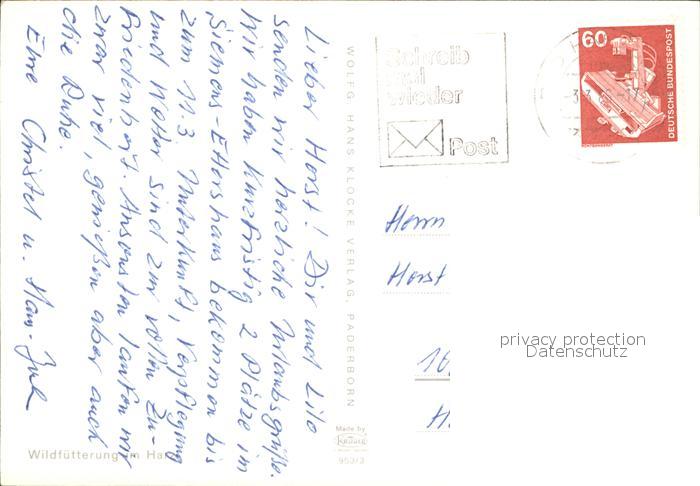 Lieber Horst! Dir und Lilo
senden wir herzliche Urlaubsgrüße.
Wir haben kurzfristig 2 Plätze im
Siemens-Ettershaus bekommen bis
zum 11.3 Unterkunft, Verpflegung
und Wetter sind zur vollen Zu-
friedenheit. Ansonsten laufen wir
zwar viel, genießen aber auch
die Ruhe.
Eure Christel u.
Wildfütterung im Harz
WOLFG. HANS KLOCKE VERLAG, PADERBORN
Made by
KRÜGER
953/3
Schreib
mal
wieder
Post
60
DEUTSCHE BUNDESPOST
RÖNTGENGERÄT
Herrn
Horst
privacy protection
Datenschutz